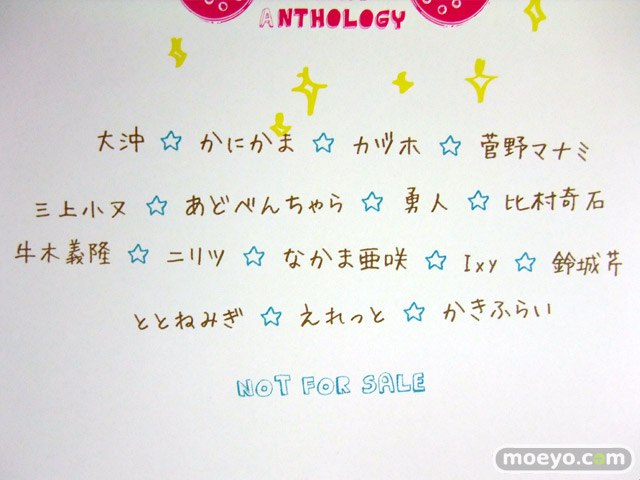 ANTHOLOGY
大沖☆かにかま☆カヅホ☆菅野マナミ
三上小又☆あどべんちゃら☆勇人☆比村奇石
牛木義隆☆ニリツ☆なかま亜咲☆Ixy☆鈴城芹
ととねみぎ☆えれっと☆かきふらい
NOT FOR SALE
moeyo.com